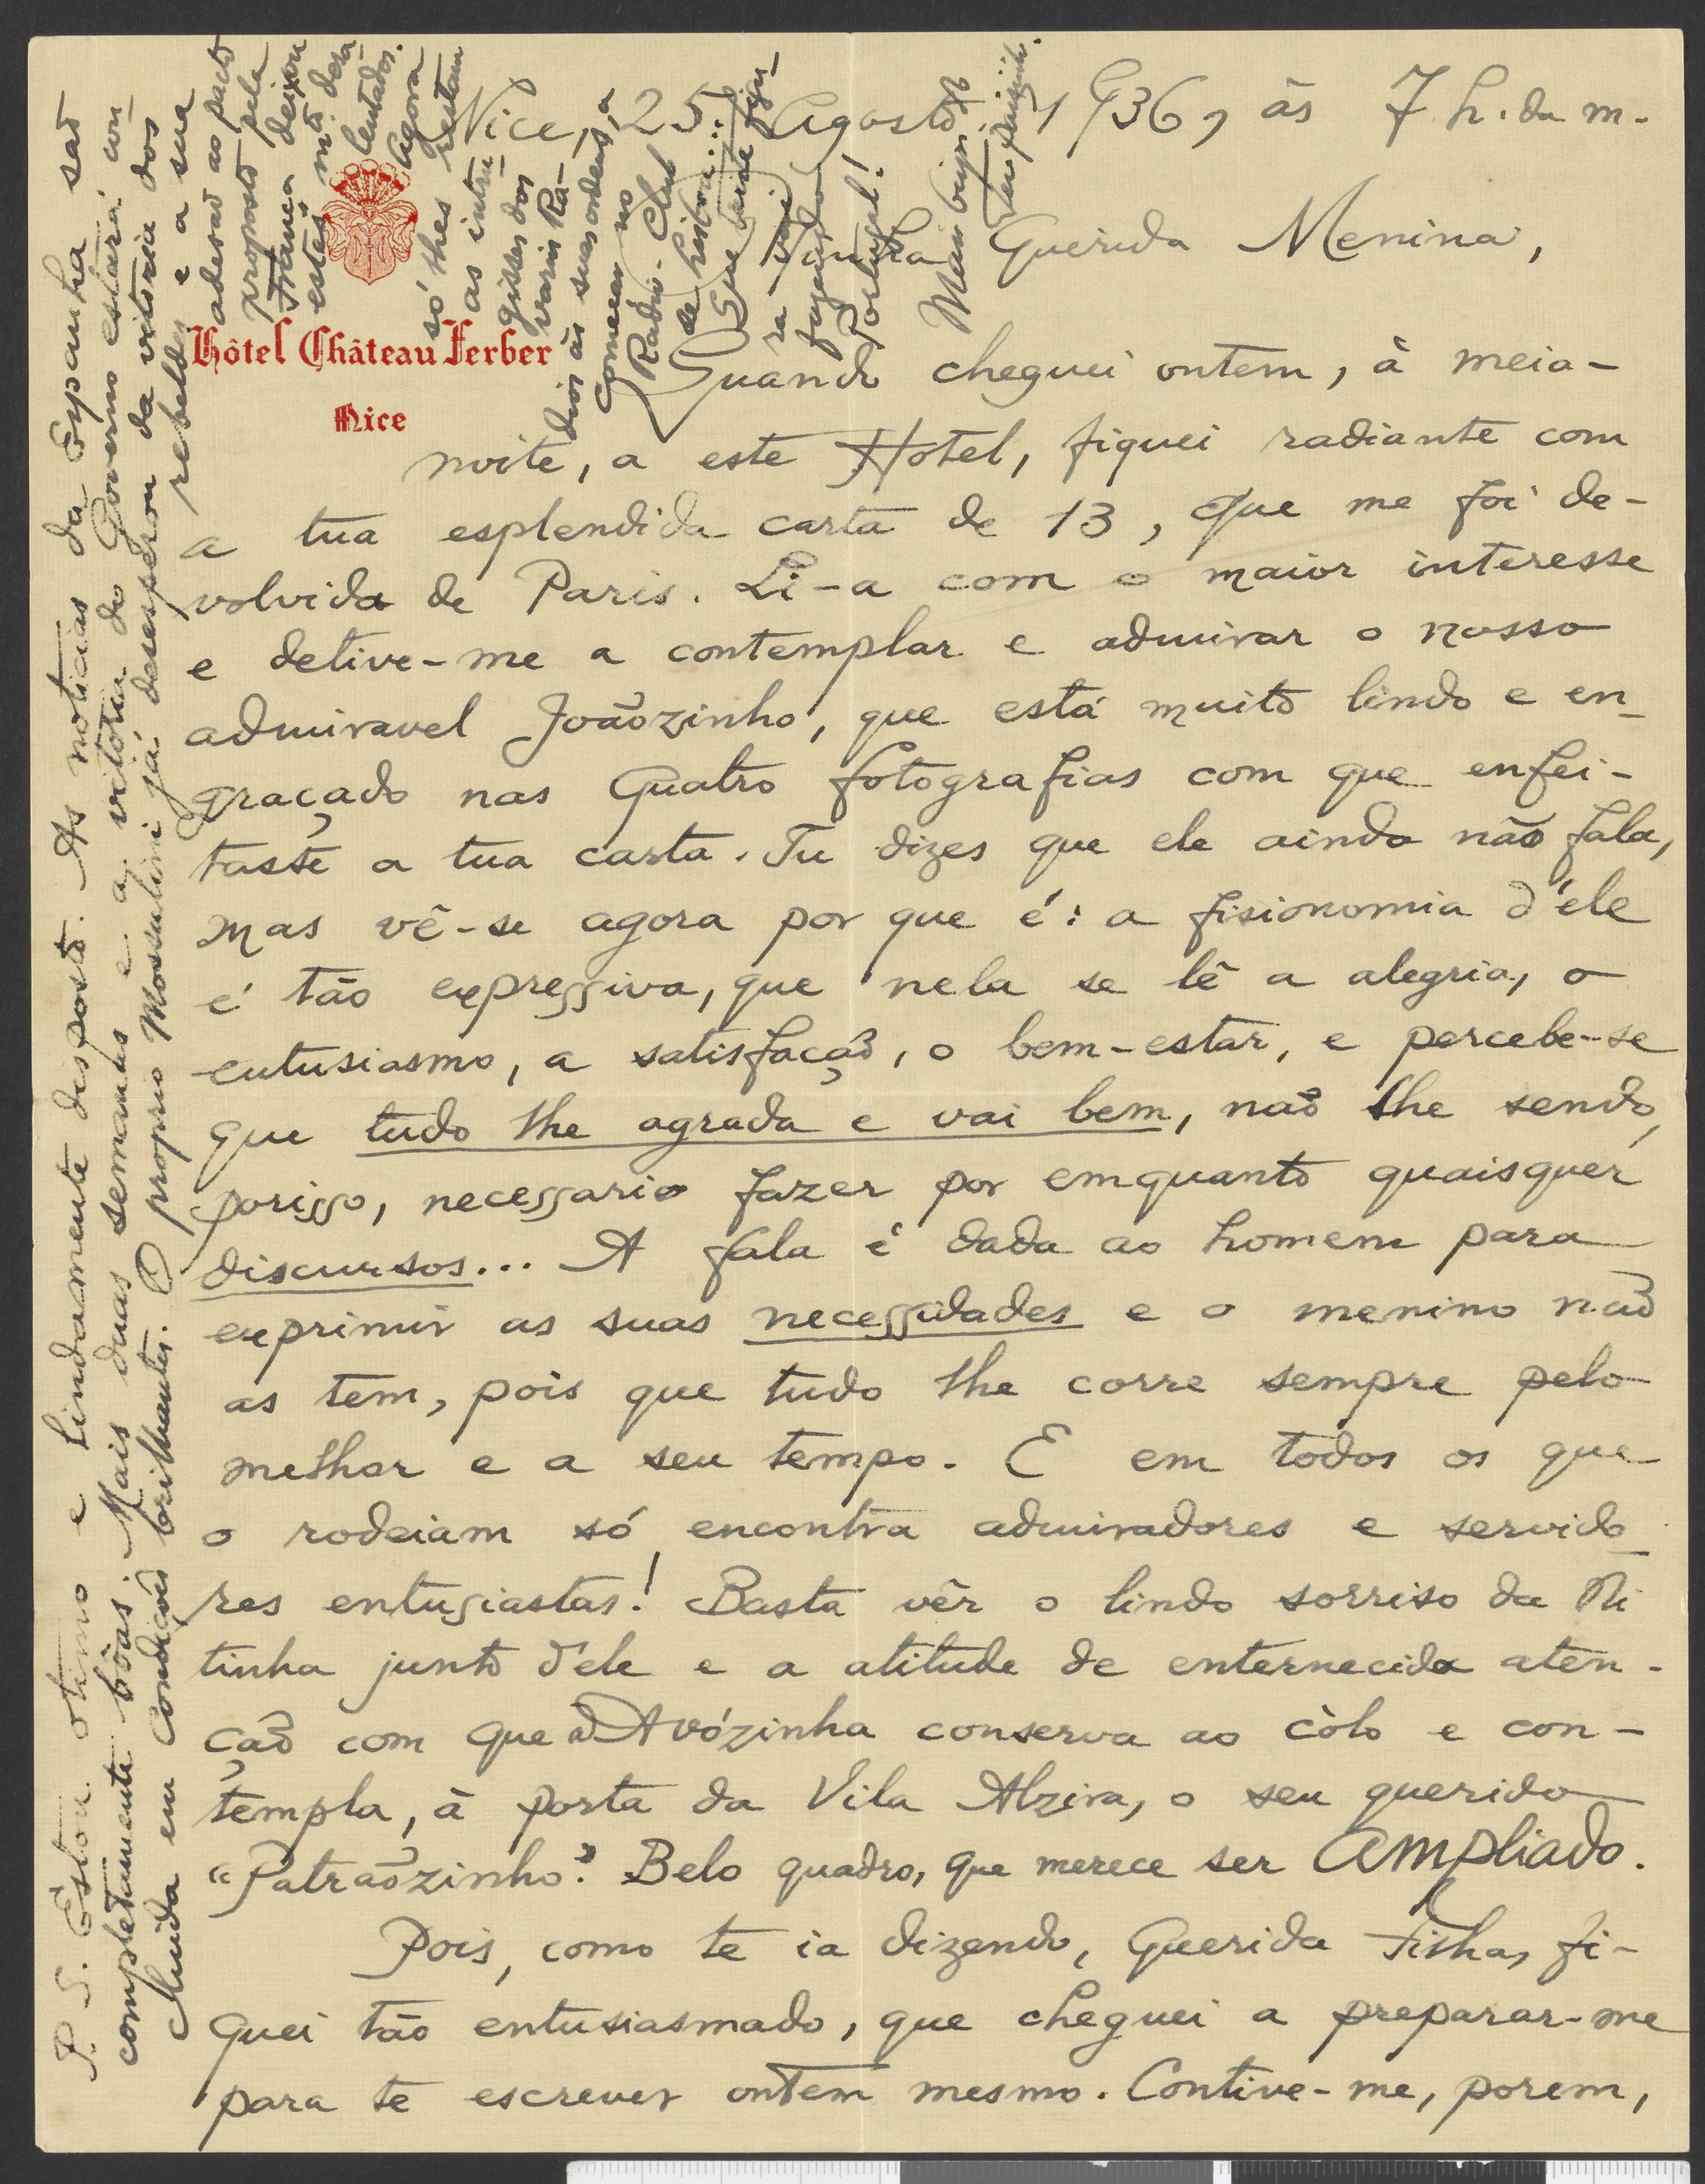 Nice, 25. Agosto. 1936, às 7 h. da m.
Hôtel Château Ferber
Nice
Minha Querida Menina,
Quando cheguei ontem, à meia-
noite, a este Hotel, fiquei radiante com
a tua esplendida carta de 13, que me foi de-
volvida de Paris. Li-a com o maior interesse
e detive-me a contemplar e admirar o nosso
admiravel Joãozinho, que está muito lindo e en-
graçado nas quatro fotografias com que enfei-
taste a tua carta. Tu dizes que ele ainda não fala,
mas vê-se agora por que é: a fisionomia d'éle
é tão expressiva, que nela se lê a alegria, o
entusiasmo, a satisfação, o bem-estar, e percebe-se
que tudo lhe agrada e vai bem, não lhe sendo,
porisso, necessario fazer por emquanto quaisquér
discursos... A fala é dada ao homem para
exprimir as suas necessidades e o menino não
as tem, pois que tudo lhe corre sempre pelo
melhor e a seu tempo. E em todos os que
o rodeiam só encontra admiradores e servido-
res entusiastas! Basta vêr o lindo sorriso da Ni
tinha junto d'ele e a atitude de enternecida aten-
ção com que a Avózinha conserva ao còlo e con-
templa, à porta da Vila Alzira, o seu querido
"Patrãozinho". Belo quadro, que merece ser ampliado.
Pois, como te ia dizendo, Querida Filha, fi-
quei tão entusiasmado, que cheguei a preparar-me
para te escrever ontem mesmo. Contive-me, porem,
P. S. Estou otimo e lindamente disposto. As noticias da Espanha são
completamente bôas. Mais duas semanas e a vitória do Governo estará con-
seguida em condições brilhantes. O proprio Mossulini já desesperou da vitória dos
rebeldes e a sua
adesão ao pacto
proposto pela
França deixou
estes mto desa-
lentados.
Agora
só lhes restam
as intru-
gisses dos
varis Rá-
dios às suas ordens, a
começar no
Radio-Club
de Lisboa...
Que triste figu-
ra vai
fazendo
Portugal!
Mais beijos do
teu paisinho.